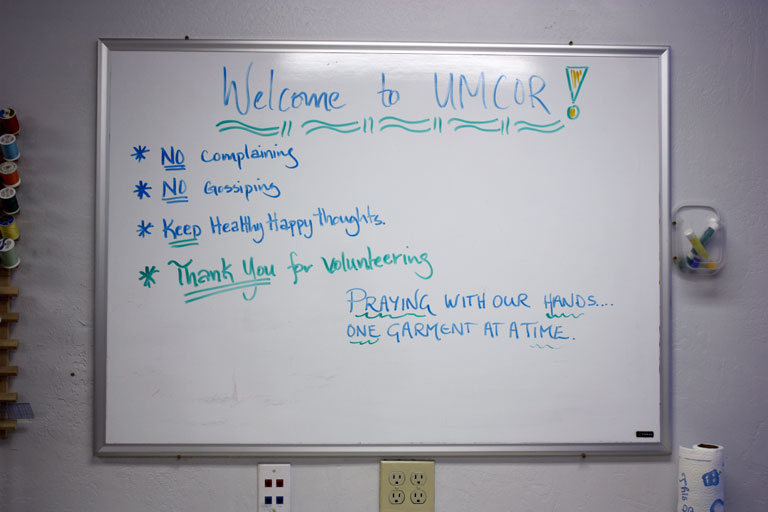 Welcome to UMCOR!
* NO Complaining
* NO Gossiping
* Keep Healthy Happy thoughts.
* Thank You for volunteering
PRAYING WITH OUR HANDS....
ONE GARMENT AT A TIME.
This